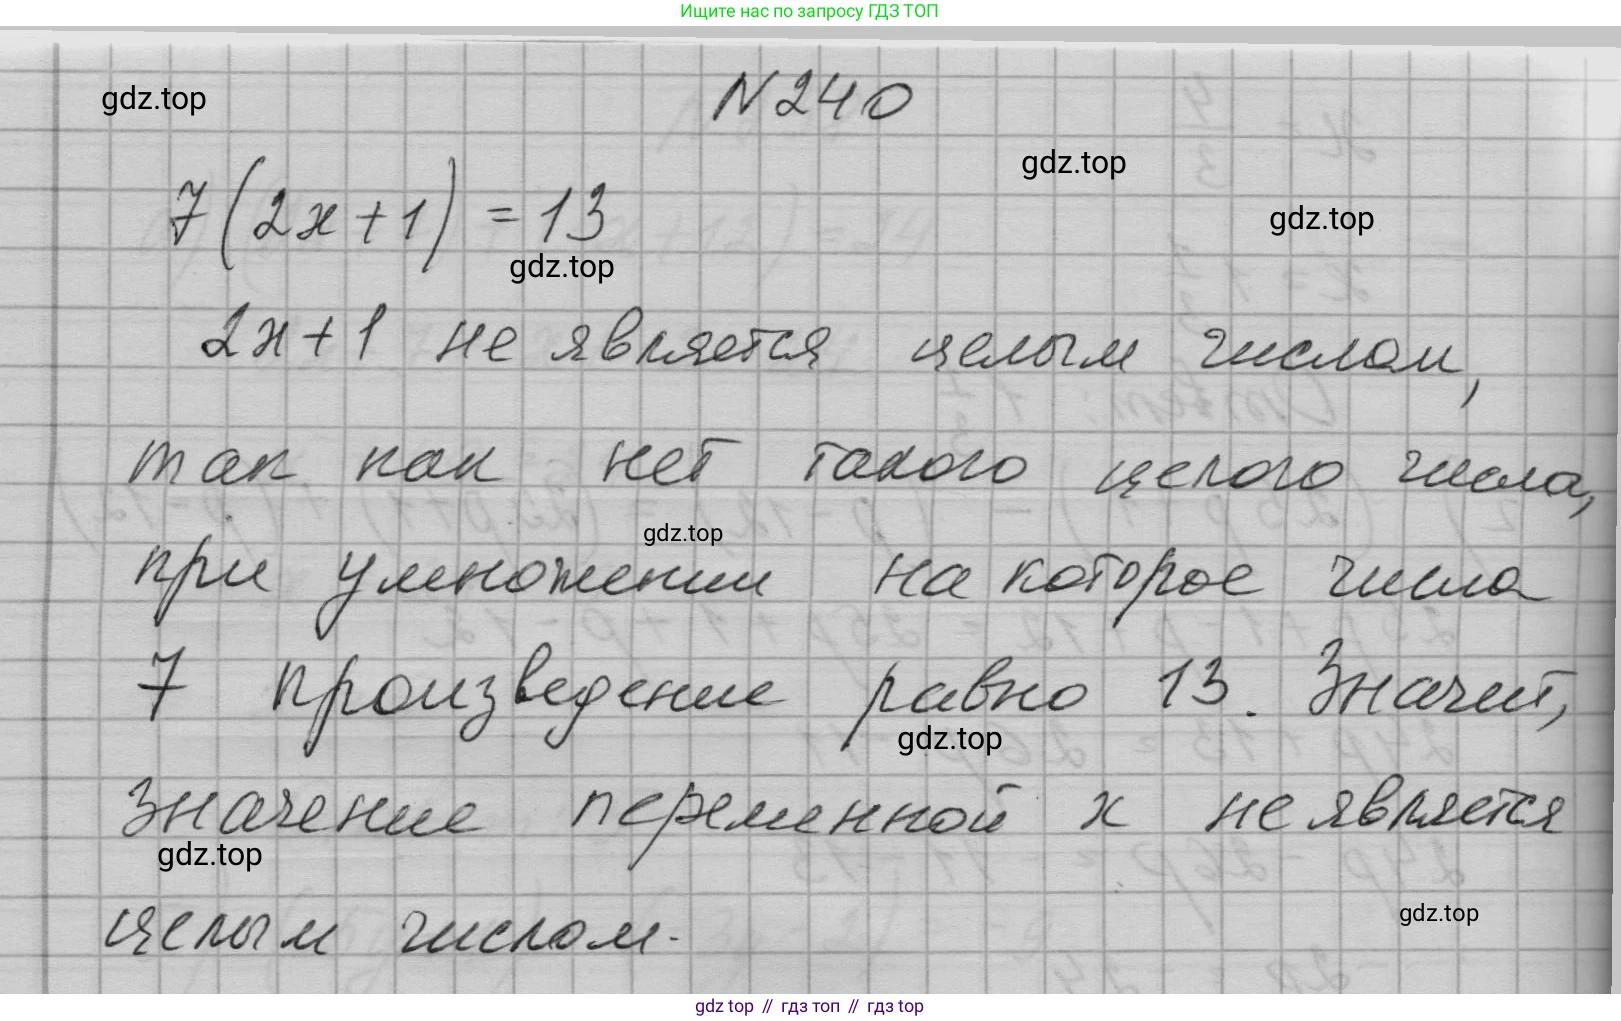 Ищите нас по запросу ГДЗ ТОП
N 240
gdz.top
gdz.top
7(2x+1) = 13
gdz.top
gdz.top
2x+1 не является целым числом,
так как нет такого целого числа,
gdz.top
при умножении на которое числа
7 произведение равно 13. Значит,
gdz.top
значение переменной x не является
gdz.top
целым числом.
gdz.top
gdz top // гдз топ // гдз top